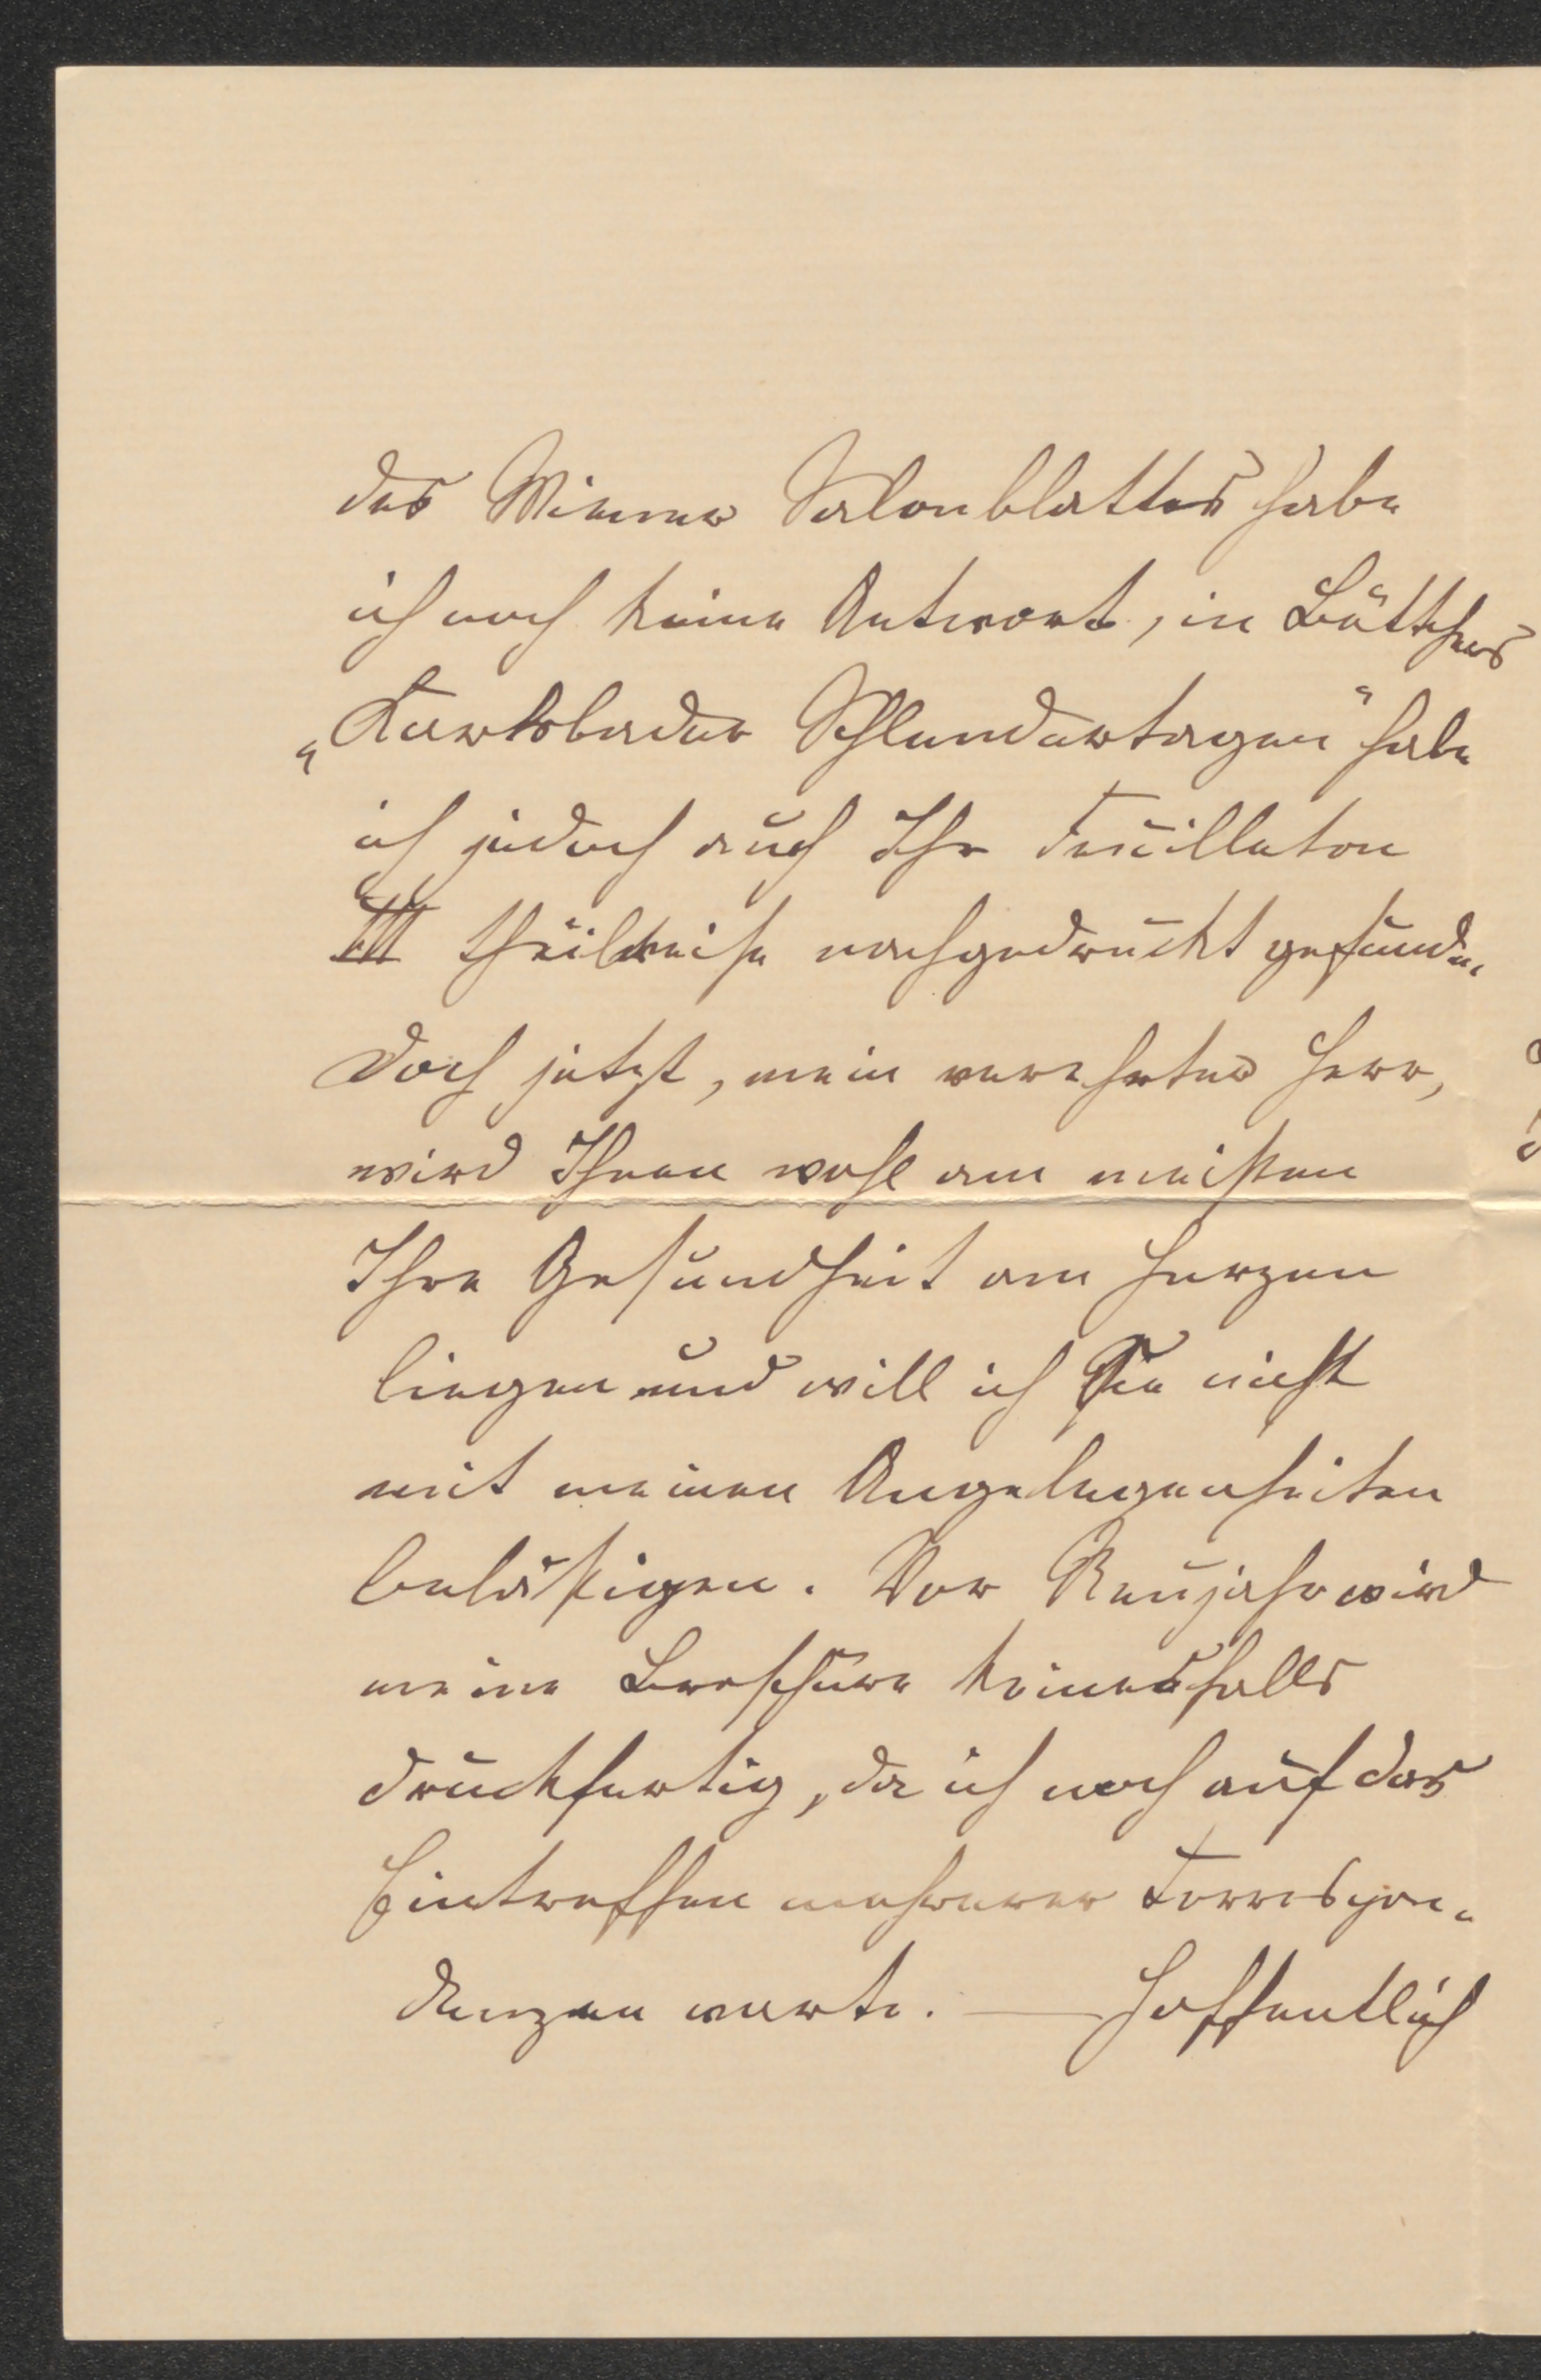 des Wiener Salonblattes habe
ich noch keine Antwort, in Böttchers
„Karlsbader Schlendertagen" habe
ich jedoch auch Ihr Feuilleton
theilweise nachgedruckt gefunden.
Doch jetzt, mein verehrter Herr,
wird Ihnen wohl am meisten
Ihre Gesundheit am Herzen
liegen und will ich Sie nicht
mit meinen Angelegenheiten
belästigen. Vor Neujahr wird
meine Broschüre keinesfalls
druckfertig, da ich noch auf das
Eintreffen mehrerer Correspon-
denzen warte. — Hoffentlich